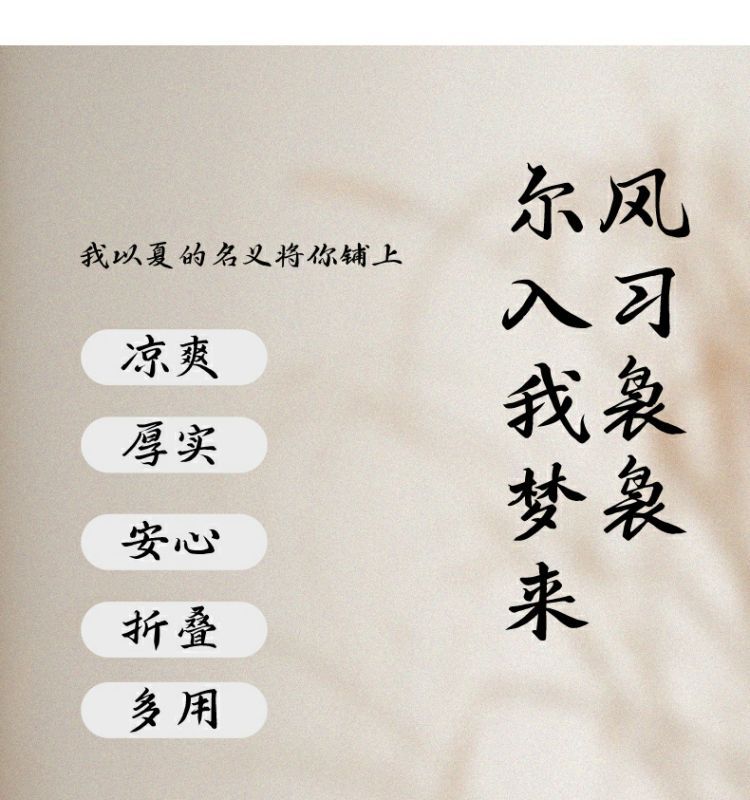 风习袅袅
尔入我梦来
我以夏的名义将你铺上
凉爽
厚实
安心
折叠
多用